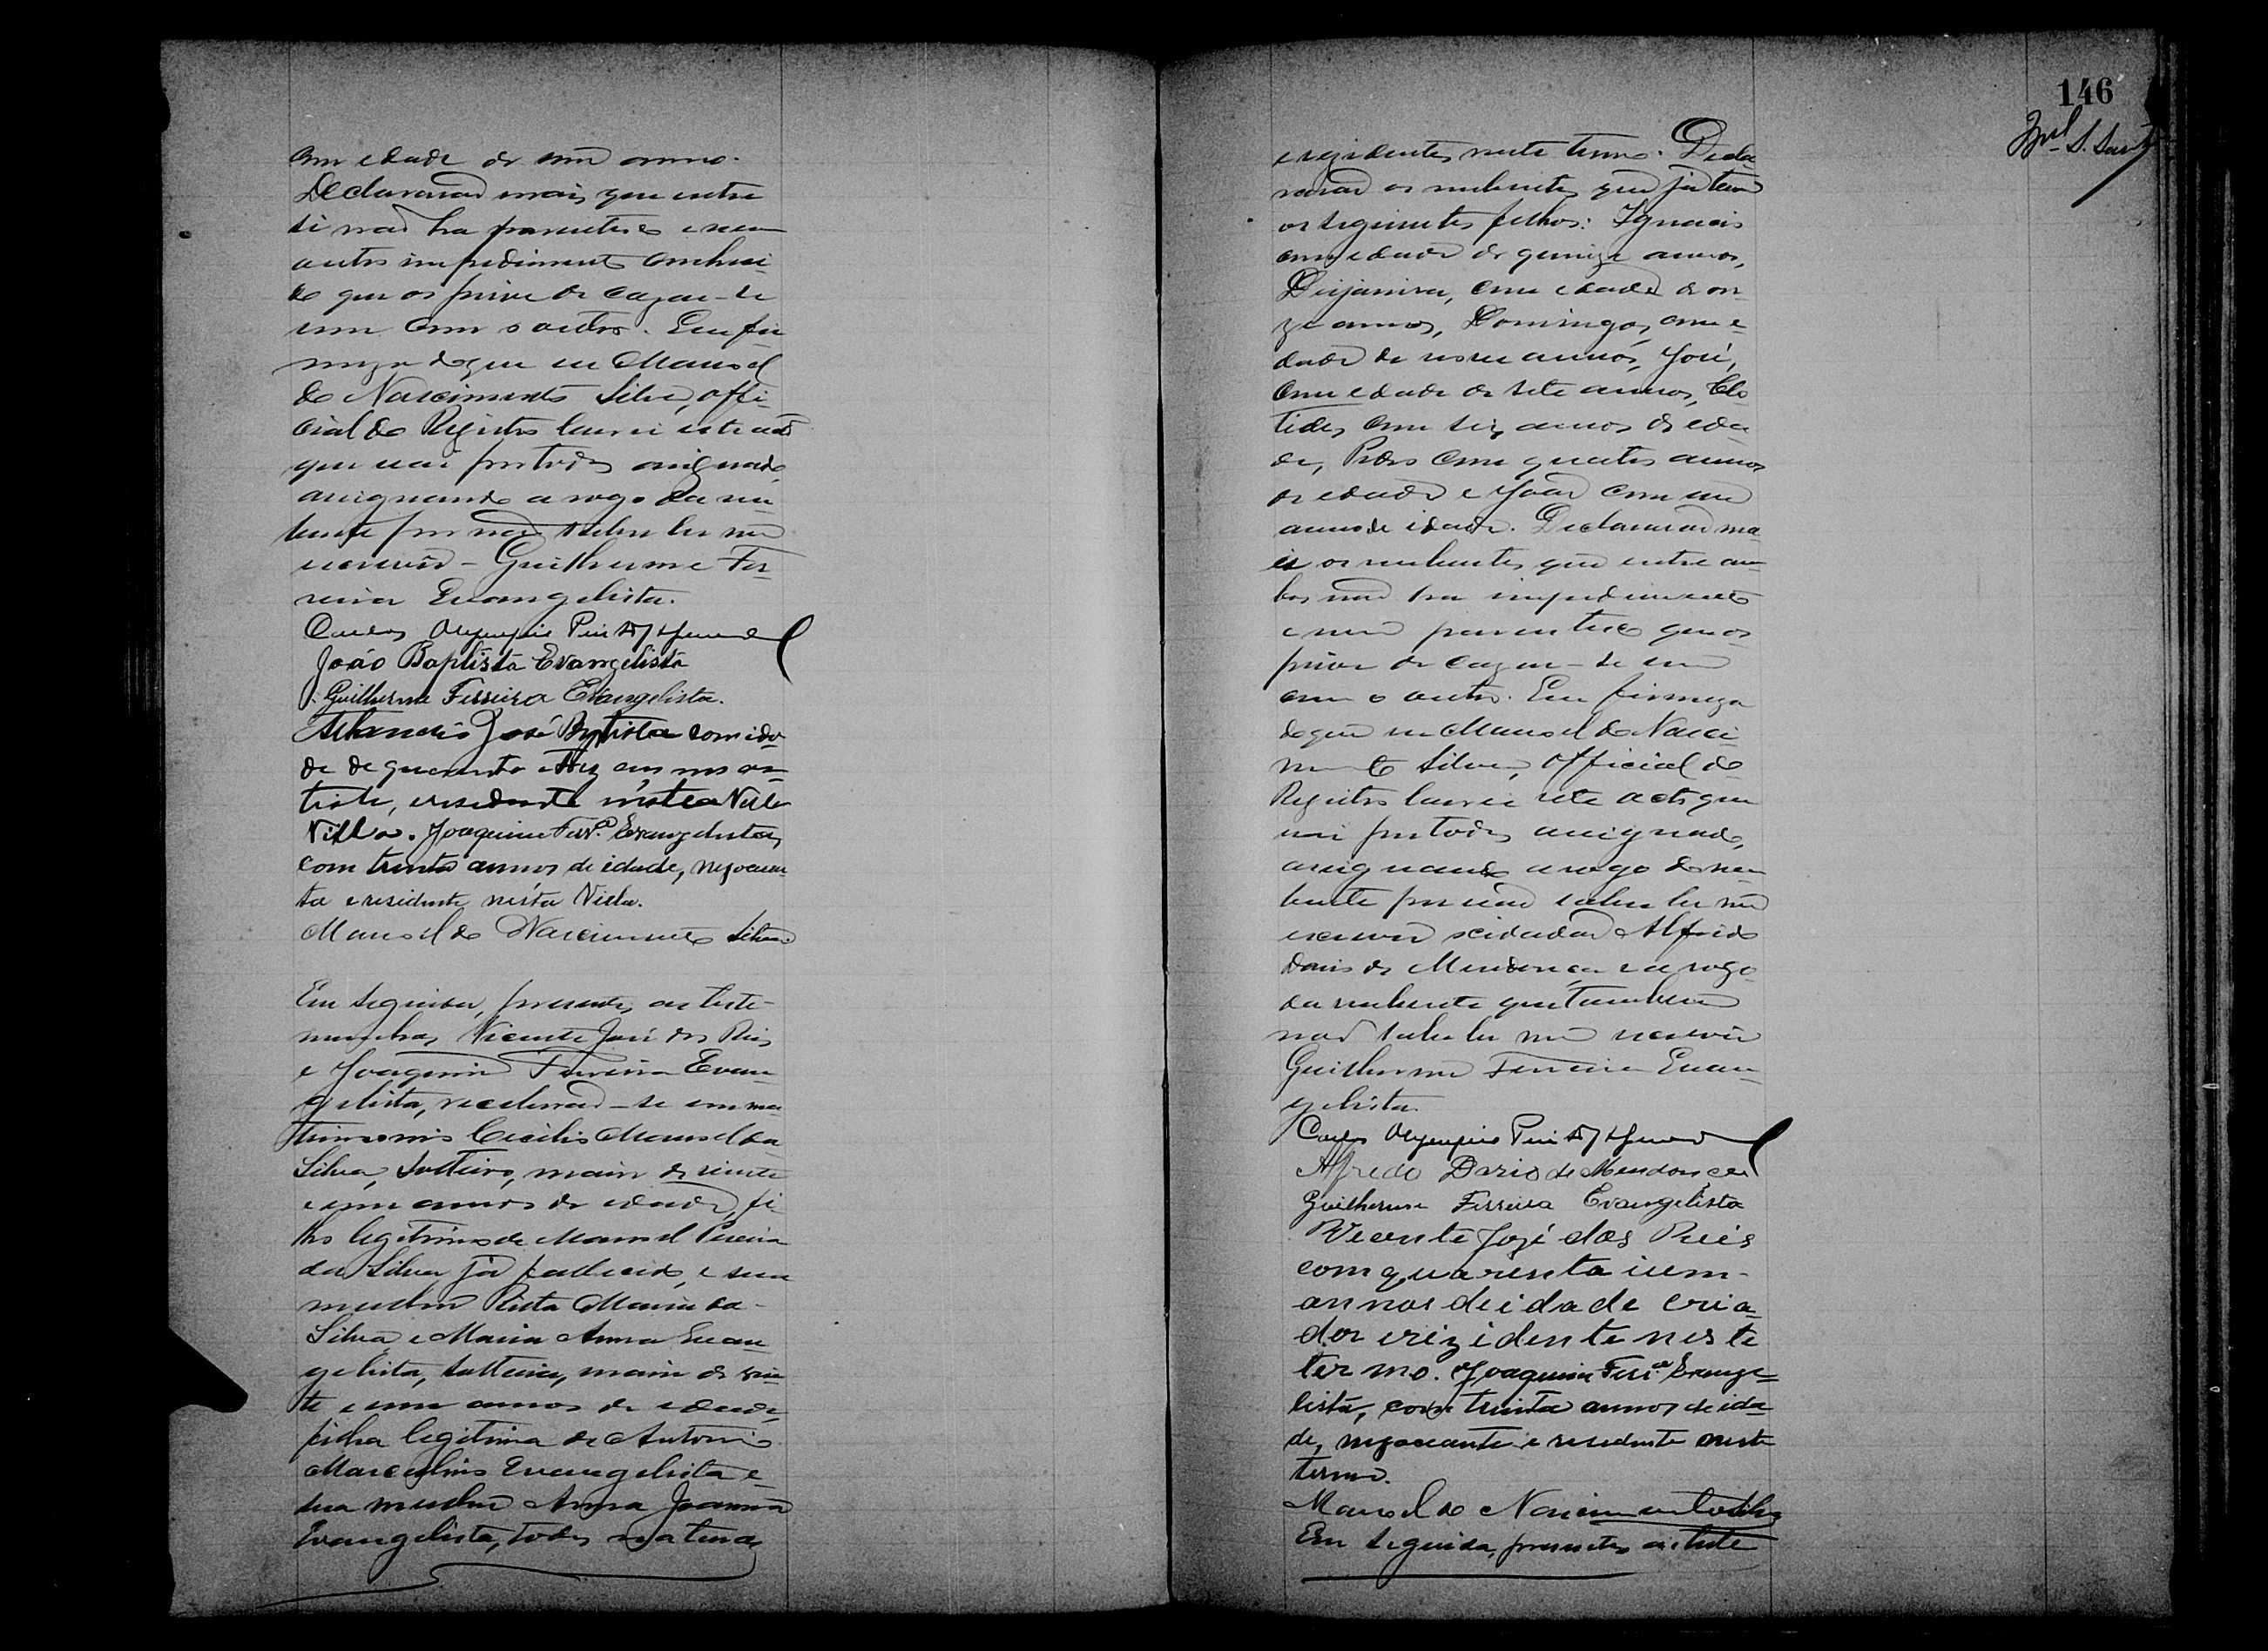 com edade de um anno.
Declararaõ mais que entre
si naõ ha parentesco e nem
outro impedimento conheci-
do que os prive de cazar-se
um com o outro. Em fir
meza do que eu Manoel
do Nascimento Silva, offi-
cial do Registro lavrei este acto
que vai por todos assignado,
assignando a rogo da nu
bente por naõ saber ler nem
escrever - Guilherme Fer
reira Evangelista.
Carlos Olympio
João Baptista Evangelista
Guilherme Ferreira Evangelista.
José Baptista com ida
de de quarenta e trez annos ar
tista, e residente nésta
Villa. Joaquim Ferr.ª Evangelista,
com trinta annos de idade, negocian
te e residente nésta Villa.
Manoel do Nascimento Silva
Em seguida, presentes as teste-
munhas, Vicente José dos Reis
e Joaquim Ferreira Evan
gelista, receberaõ-se em ma
trimonio Cecilio Manoel da
Silva, solteiro, maior de vinte
e um annos de edade, fi
lho legitimo de Manoel Pereira
da Silva já fallecido, e sua
mulher Rita Maria da
Silva e Maria Anna Evan
gelista, solteira, maior de vin
te e um annos de edade,
filha legitima de Antonio
Marcolino Evangelista e
sua mulher Anna Joanna
Evangelista, todos naturaes
146
S. Santos
e rezidentes neste termo. Decla
raraõ os nubentes que já tem
os seguintes filhos: Ignacio
com edade de quinze annos,
Dejanira, com edade de on
ze annos, Domingos, com e
dade de nove annos, José,
com edade de sete annos, Clo
tides com seis annos de eda
de, Pedro com quatro annos
de edade e Joaõ com um
anno de idade. Declararaõ ma
is os nubentes que entre am
bos naõ ha impedimento
e nem parentesco que os
prive de cazar-se um
com o outro. Em firmeza
do que eu Manoel do Nasci
mento Silva, Official do
Registro lavrei este acto que
vai por todos assignado,
assignando a rogo do nu
bente por naõ saber ler nem
escrever o cidadaõ Alfredo
Dario de Mendonça e a rogo
da nubente que tambem
naõ sabe ler nem escrever
Guilherme Ferreira Evan
gelista.
Carlos Olympio
Alfredo Dario de Mendonça
Guilherme Ferreira Evangelista
Vicente José dos Reis
com quarenta i um
annos de idade cria
dor e rizidente neste
termo. Joaquim Ferr.ª Evange
lista, com trinta annos de ida
de, negociante e residente neste
termo.
Manoel do Nascimento Silva
Em seguida, presentes as teste